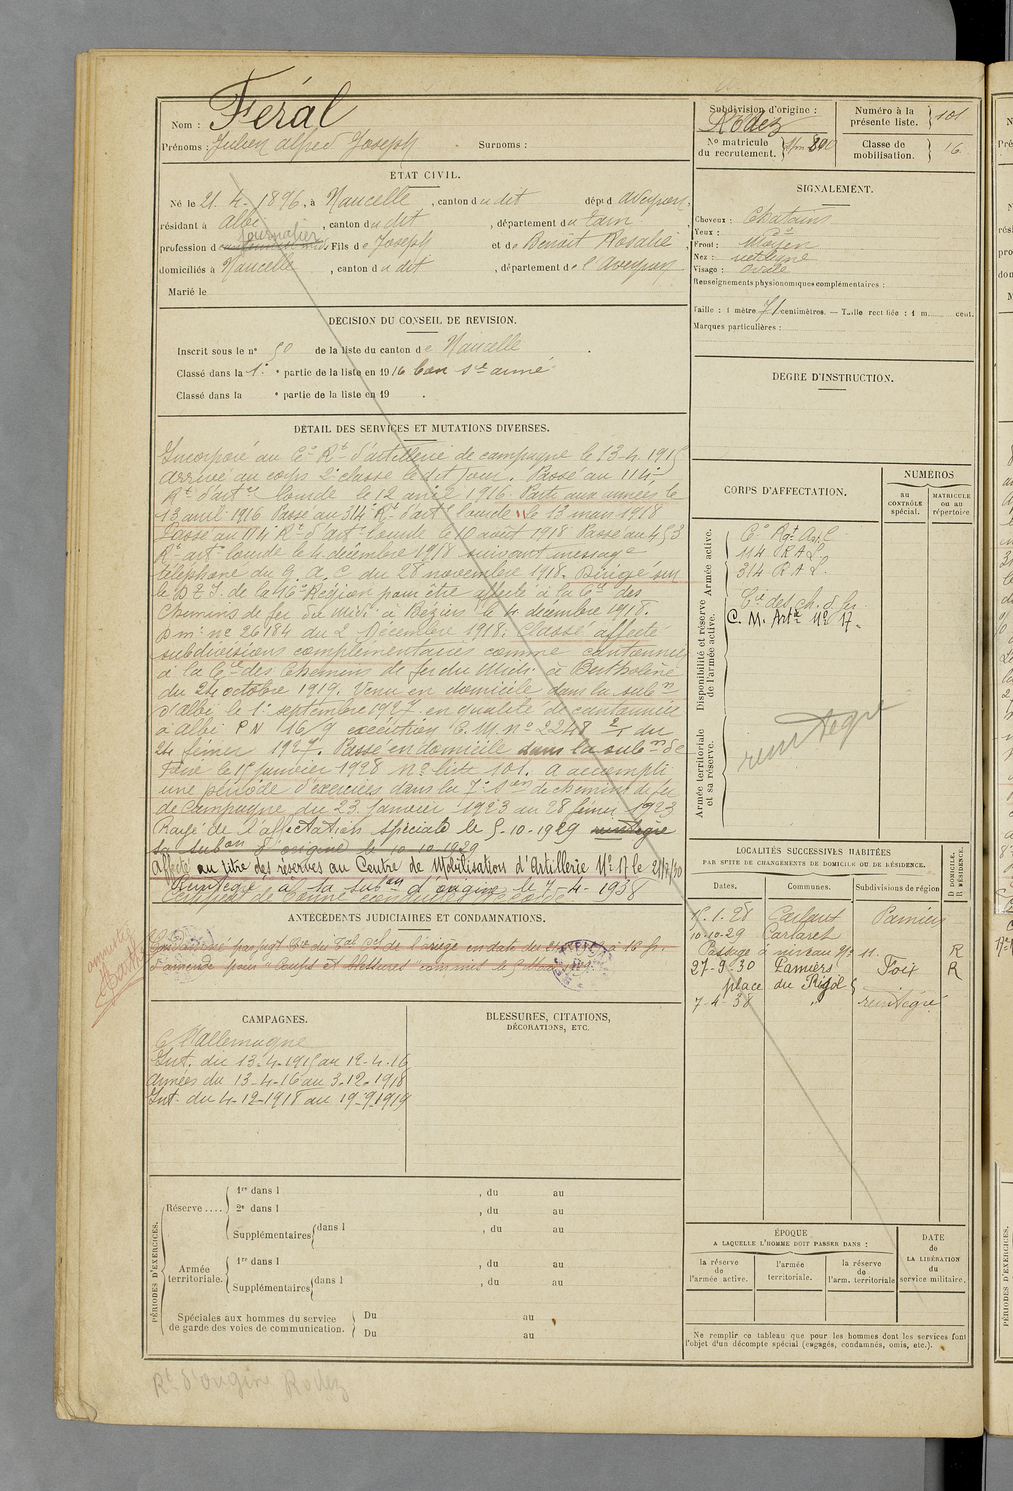 Nom : Féral
Prénoms : Julien Alfred Joseph Surnoms :
ÉTAT CIVIL.
Né le 21. 4. 1896, à Naucelle, canton du dit, dépt d Aveyron,
résidant à Albi, canton du dit, département du Tarn
journalier
profession de, Fils de Joseph et de Benoit Rosalie
domiciliés à Naucelle, canton du dit, département de l'Aveyron
Marié le
DÉCISION DU CONSEIL DE REVISION.
Inscrit sous le n° 50 de la liste du canton de Naucelle.
Classé dans la 1e partie de la liste en 1916 Bon sce armé
Classé dans la e partie de la liste en 19 .
DÉTAIL DES SERVICES ET MUTATIONS DIVERSES.
Incorporé au Rt d'artillerie de campagne le 13-4-1915
arrivé au corps 2e classe le dit jour. Passé au 114e
Rt d'artie lourde le 12 avril 1916. Parti aux armées le
13 avril 1916. Passé au 314 Rt d'art lourde le 13 mars 1918
Passé au 114 Rt d'art lourde le 10 août 1918 Passé au 453
Rt art lourde le 4 décembre 1918 suivant message
téléphoné du G. A. C. du 28 novembre 1918. Dirigé sur
le D.I. de la 16e Région pour être affecté à la Cie des
Chemins de fer du Midi à Béziers le 4 décembre 1918.
D mle n° 26184 du 2 Décembre 1918. Classé affecté
subdivisions complémentaires comme cantonnier
à la Cie des Chemins de fer du Midi à Bertholène
du 24 octobre 1919. Venu en domicile dans la subon
d'Albi le 1e septembre 1927 en qualité de cantonnier
à Albi PN 16/9 exécution C. M. n° 2248 2/1 du
24 février 1927. Passé en domicile dans la subon de
Foix le 15 janvier 1928 n° liste 101. A accompli
une période d'exercices dans la 7e Son de chemins de fer
de Campagne du 23 Janvier 1923 au 28 février 1923
Rayé de l'affectation spéciale le 5-10-1929 réintégré
sa subon d'origine le 10-10-1929
Affecté au titre des réserves au Centre de Mobilisation d'Artillerie N° 17 le
Réintégré à la subon d'origine le 7-4-1938
ANTÉCÉDENTS JUDICIAIRES ET CONDAMNATIONS.
amnistié
d'amende pour "coups et blessures" commis le
CAMPAGNES.
C l'Allemagne
Int. du 13-4-1915 au 12-4-16
Armées du 13-4-16 au 3-12-1918
Int. du 4-12-1918 au 19-9-1919
BLESSURES, CITATIONS,
DÉCORATIONS, ETC.
PÉRIODES D'EXERCICES.
Réserve....
1re dans l , du au
2e dans l , du au
Supplémentaires dans l , du au
Armée territoriale.
1re dans l , du au
Supplémentaires dans l , du au
Spéciales aux hommes du service
de garde des voies de communication.
Du au
Du au
Rt d'origine Rodez
Subdivision d'origine :
Rodez
N° matricule
du recrutement.
Numéro à la
présente liste. 101
Classe de
mobilisation. 16
SIGNALEMENT.
Cheveux : Chatains
Yeux : do
Front : Moyen
Nez : rectiligne
Visage : Ovale
Renseignements physionomiques complémentaires :
Taille : 1 mètre 71 centimètres. — Taille rectifiée : 1 m. cent.
Marques particulières :
DEGRÉ D'INSTRUCTION.
CORPS D'AFFECTATION.
NUMÉROS
au
CONTRÔLE
spécial.
MATRICULE
ou au
répertoire
Armée active.
Rgt Art C
114 R A L
314 R A L
Disponibilité et réserve
de l'armée active.
Cie des ch. d fer
C. M. Artie N° 17.
Armée territoriale
et sa réserve.
réintégré
LOCALITÉS SUCCESSIVES HABITÉES
PAR SUITE DE CHANGEMENTS DE DOMICILE OU DE RÉSIDENCE.
Dates. Communes. Subdivisions de région
D DOMICILE.
R RÉSIDENCE.
15.1.28 Carlaret Pamiers
10-10-29 Carlaret
Passage à niveau N° 11. R
27-9-30 Pamiers Foix R
place du
7-4-38 " réintégré
ÉPOQUE
A LAQUELLE L'HOMME DOIT PASSER DANS :
la réserve
de
l'armée active.
l'armée
territoriale.
la réserve
de
l'arm. territoriale
DATE
de
LA LIBÉRATION
du
service militaire.
Ne remplir ce tableau que pour les hommes dont les services font
l'objet d'un décompte spécial (engagés, condamnés, omis, etc.).